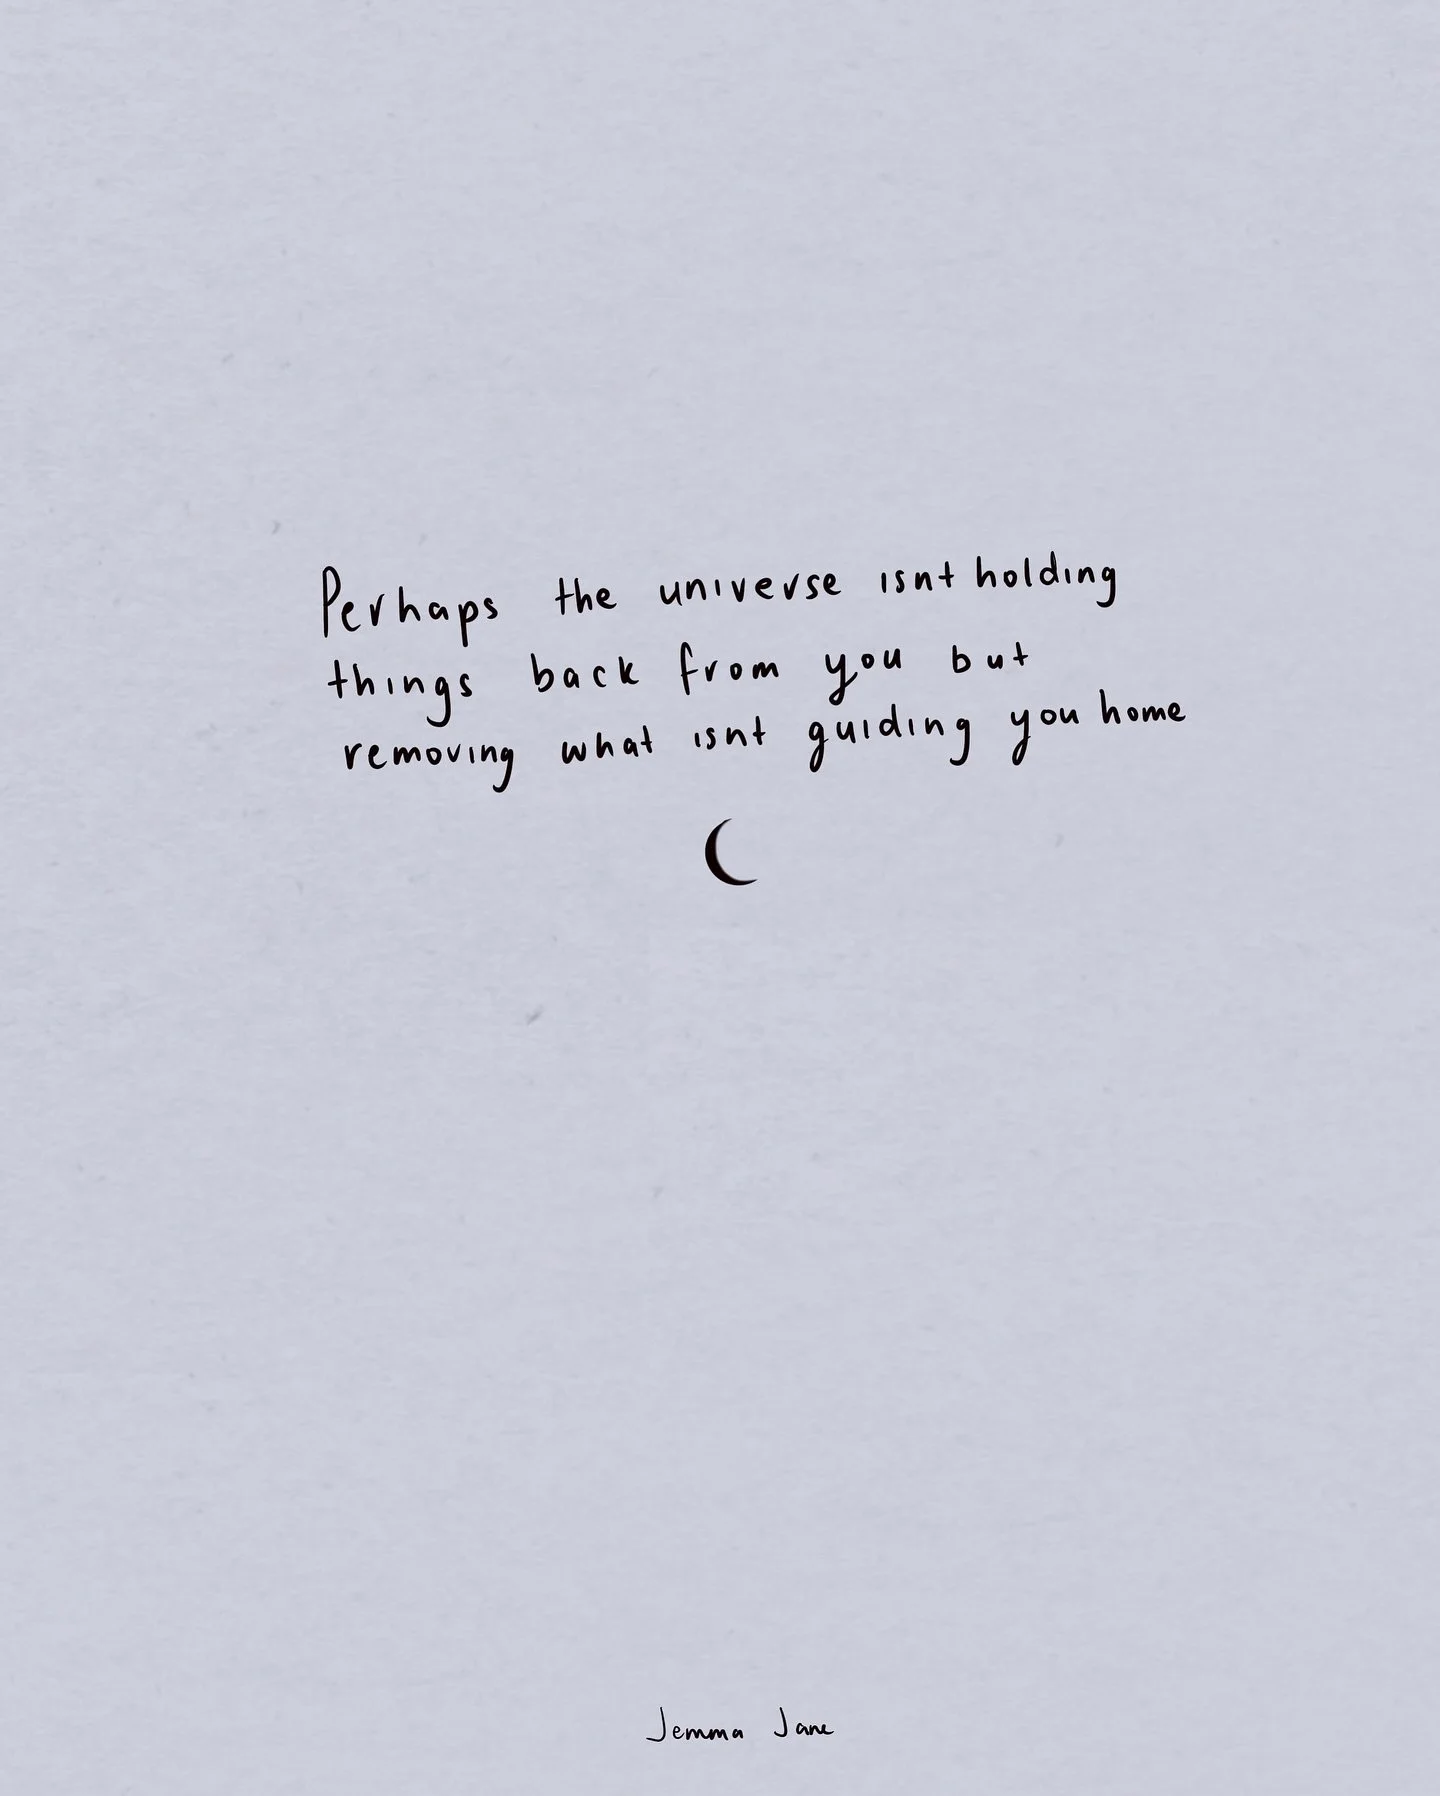 Perhaps the universe isnt holding
things back from you but
removing what isnt guiding you home
Jemma Jane